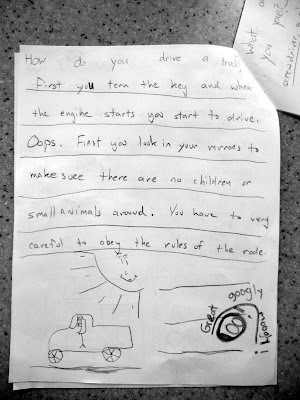 How do you drive a truck
First you tern the key and when
the engine starts you start to drive.
Oops. First you look in your mirrors to
make suce there are no children or
small animals around. You have to very
careful to obey the rules of the rode.
Great
googly
moogly!
what
you